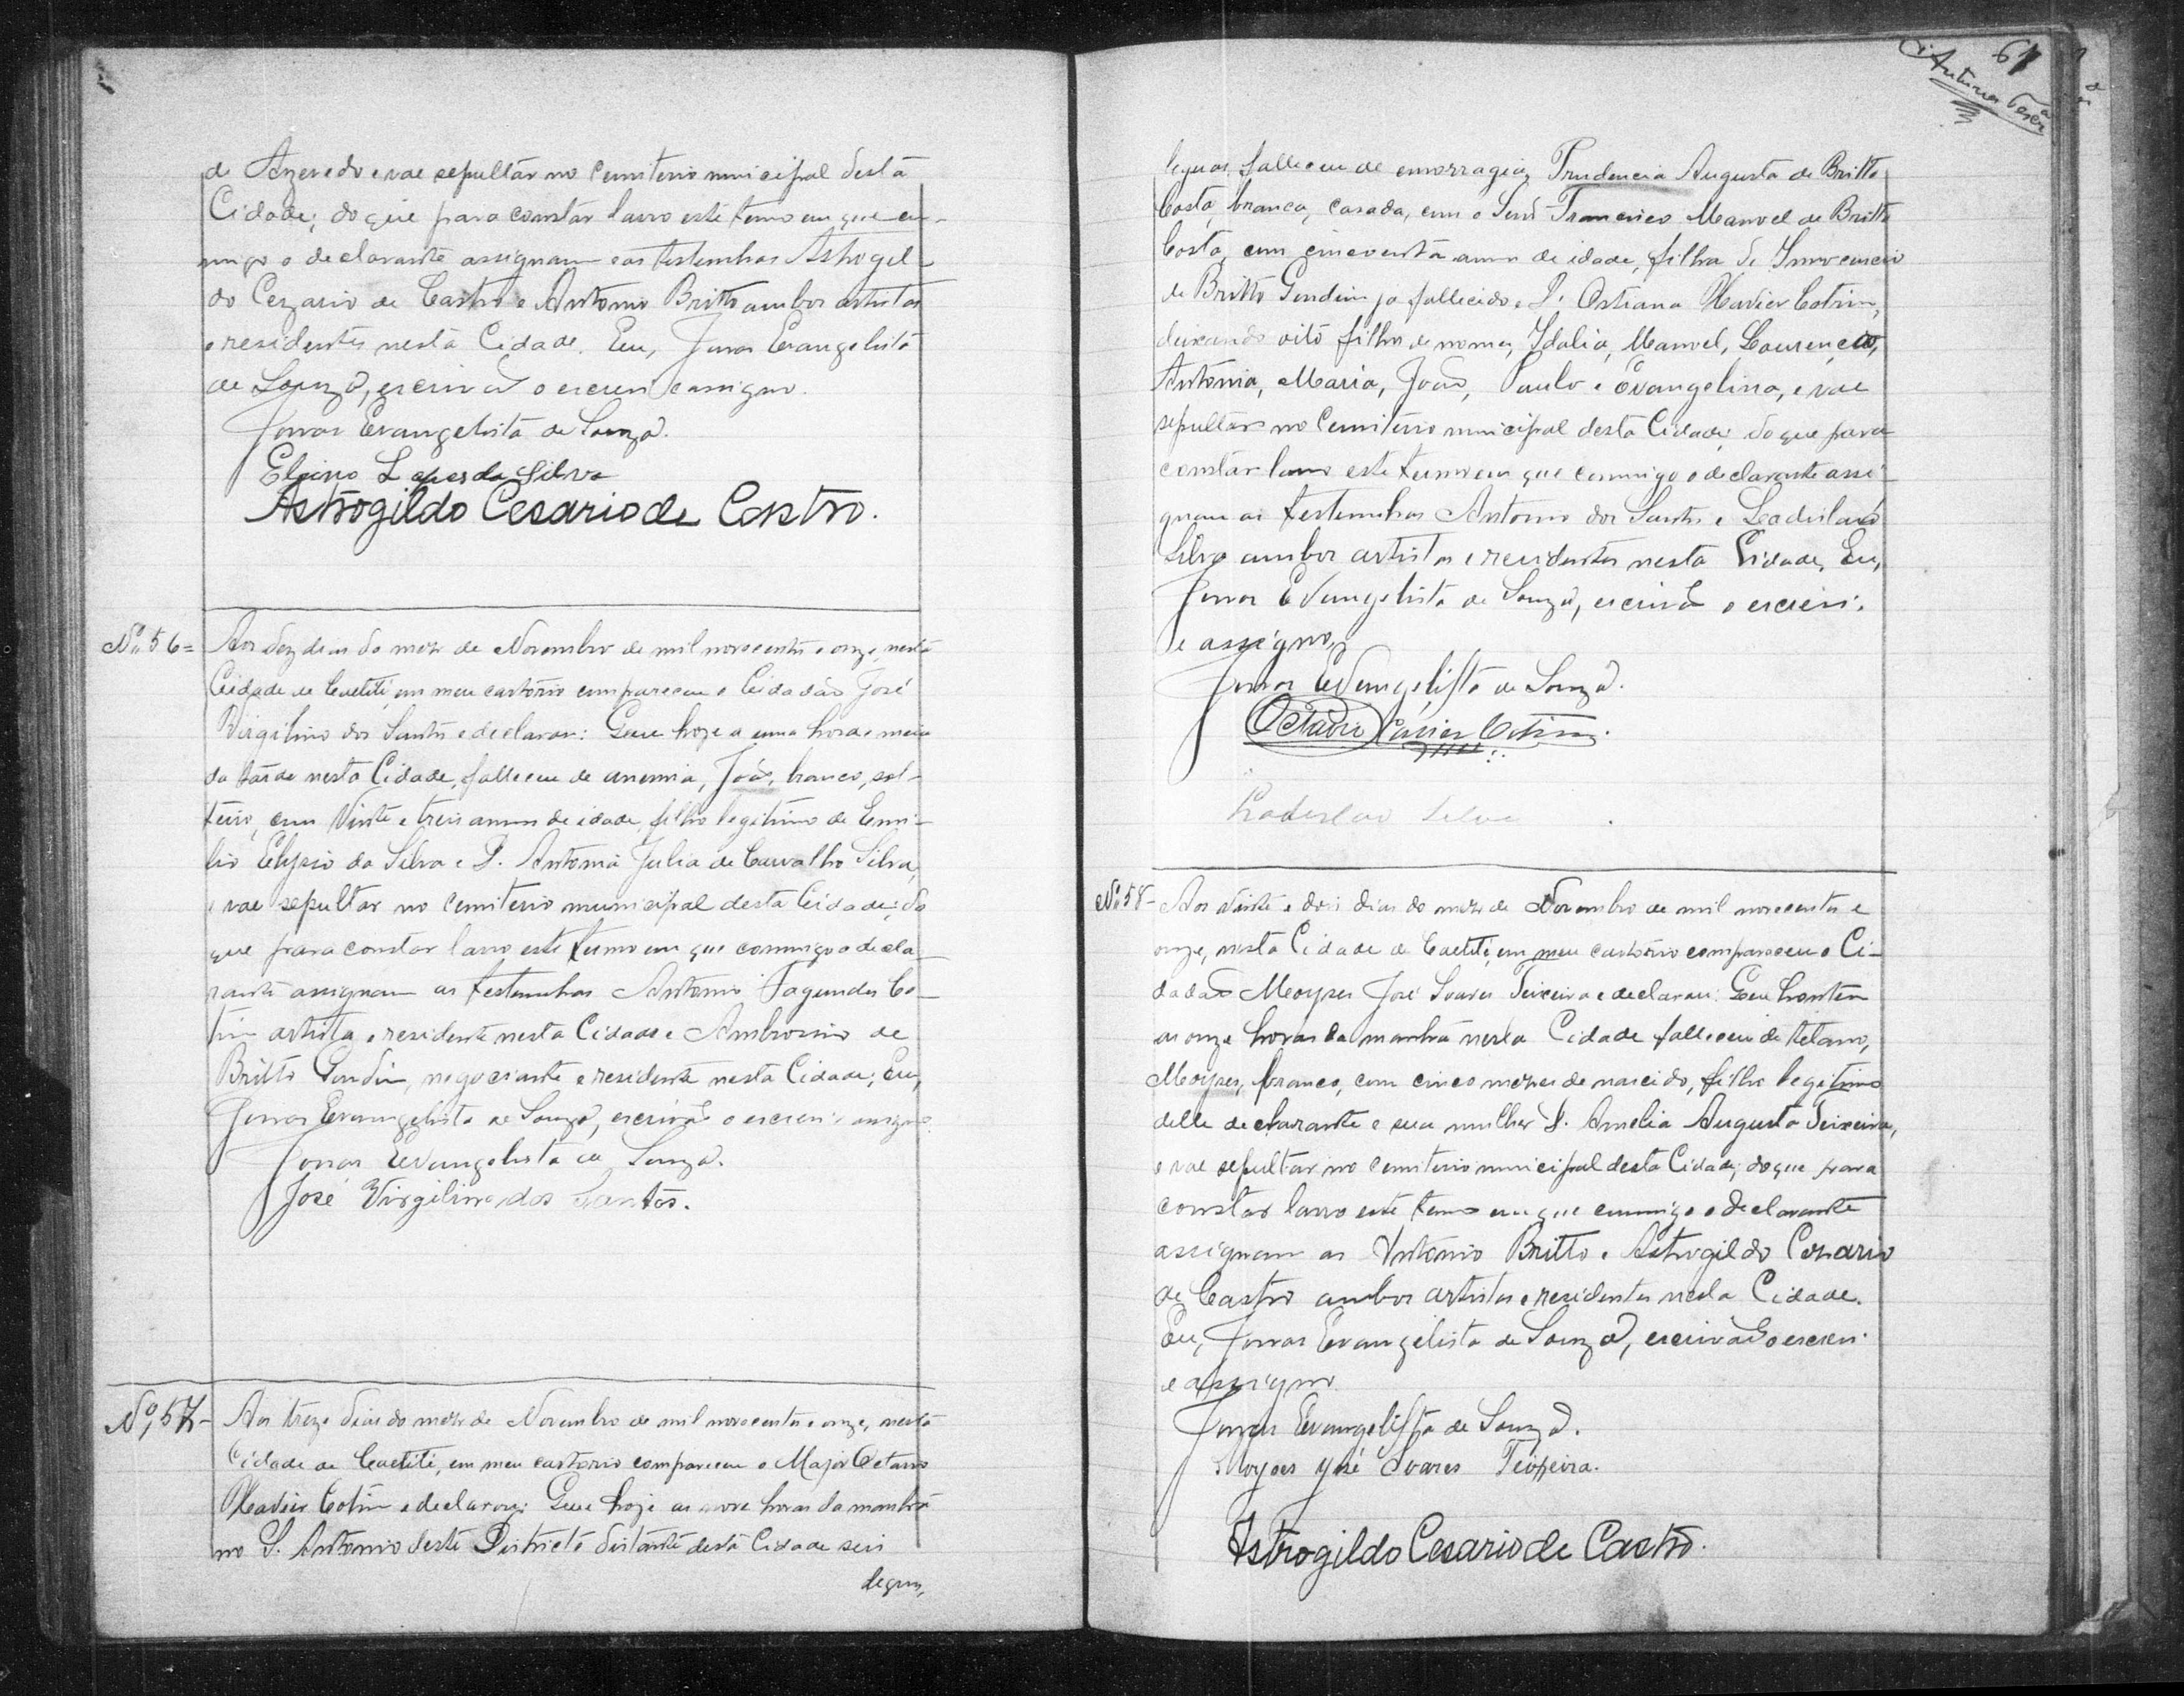 de Azevedo e vae sepultar no Cemiterio municipal desta
Cidade; do que para constar lavro este termo em que com-
migo o declarante assignam e as testemunhas Astrogil-
do Cezario de Castro e Antonio Britto ambos artistas
e residentes nesta Cidade. Eu, Jonas Evangelista
de Souza, escrivão o escrevi e assigno.
Jonas Evangelista de Souza.
Elpino Lopes da Silva
Astrogildo Cesario de Castro.
Nº 56= Aos dez dias do mez de Novembro de mil novecentos e onze, nesta
Cidade de Caetité, em meu cartorio compareceu o Cidadão José
Virgilino dos Santos e declarou: Que hoje a uma hora e meia
da tarde nesta Cidade, falleceu de anemia, João, branco, sol-
teiro, com vinte e treis annos de idade, filho legitimo de Emi-
lio Elysio da Silva e D. Antonia Julia de Carvalho Silva,
e vae sepultar no Cemiterio municipal desta Cidade; do
que para constar lavro este termo em que commigo o decla-
rante assignam as testemunhas Antonio Fagundes Co-
tim artista e residente nesta Cidade e Ambrosino de
Britto Gondin, negociante e residente nesta Cidade; Eu,
Jonas Evangelista de Souza, escrivão o escrevi e assigno.
Jonas Evangelista de Souza.
José Virgilino dos Santos.
Nº 57- Aos treze dias do mez de Novembro de mil novecentos e onze, nesta
Cidade de Caetité, em meu cartorio compareceu o Major Octavio
Xavier Cotim e declarou: Que hoje as nove horas da manhã
no S. Antonio deste Districto distante desta Cidade seis
leguas,
61
leguas, falleceu de emorragia, Prudencia Augusta de Britto
Costa, branca, casada, com o Senr Francisco Manoel de Britto
Costa, com cincoenta annos de idade, filha de Innocencio
de Britto Gondim ja fallecido e D. Ostiana Xavier Cotrim,
deixando oito filhos de nomes, Idalia, Manoel, Lourenço,
Antonia, Maria, João, Paulo e Evangelina, e vae
sepultar no Cemiterio municipal desta Cidade; do que para
constar lavro este termo em que commigo o declarante assi-
gnam as testemunhas Antonio dos Santos e Ladislau
Silva ambos artistas e residentes nesta Cidade, Eu,
Jonas Evangelista de Souza, escrivão o escrevi.
e assigno,
Jonas Evangelista de Souza.
Octavio Xavier Cotrim.
Ladislao Silva
Nº 58- Aos vinte e dois dias do mez de Novembro de mil novecentos e
onze, nesta Cidade de Caetité, em meu cartorio compareceu o Ci-
dadão Moyses José Soares Teixeira e declarou: Que hontem
as onze horas da manhã nesta Cidade falleceu de tetano,
Moyses, branco, com cinco mezes de nascido, filho legitimo
delle declarante e sua mulher D. Amelia Augusta Teixeira,
e vae sepultar no cemiterio municipal desta Cidade; do que para
constar lavro este termo em que commigo o declarante
assignam as Antonio Britto e Astrogildo Cezario
de Castro ambos artistas e residentes nesta Cidade.
Eu, Jonas Evangelista de Souza, escrivão o escrevi
e assigno
Jonas Evangelista de Souza.
Moyses José Soares Teixeira.
Astrogildo Cesario de Castro.